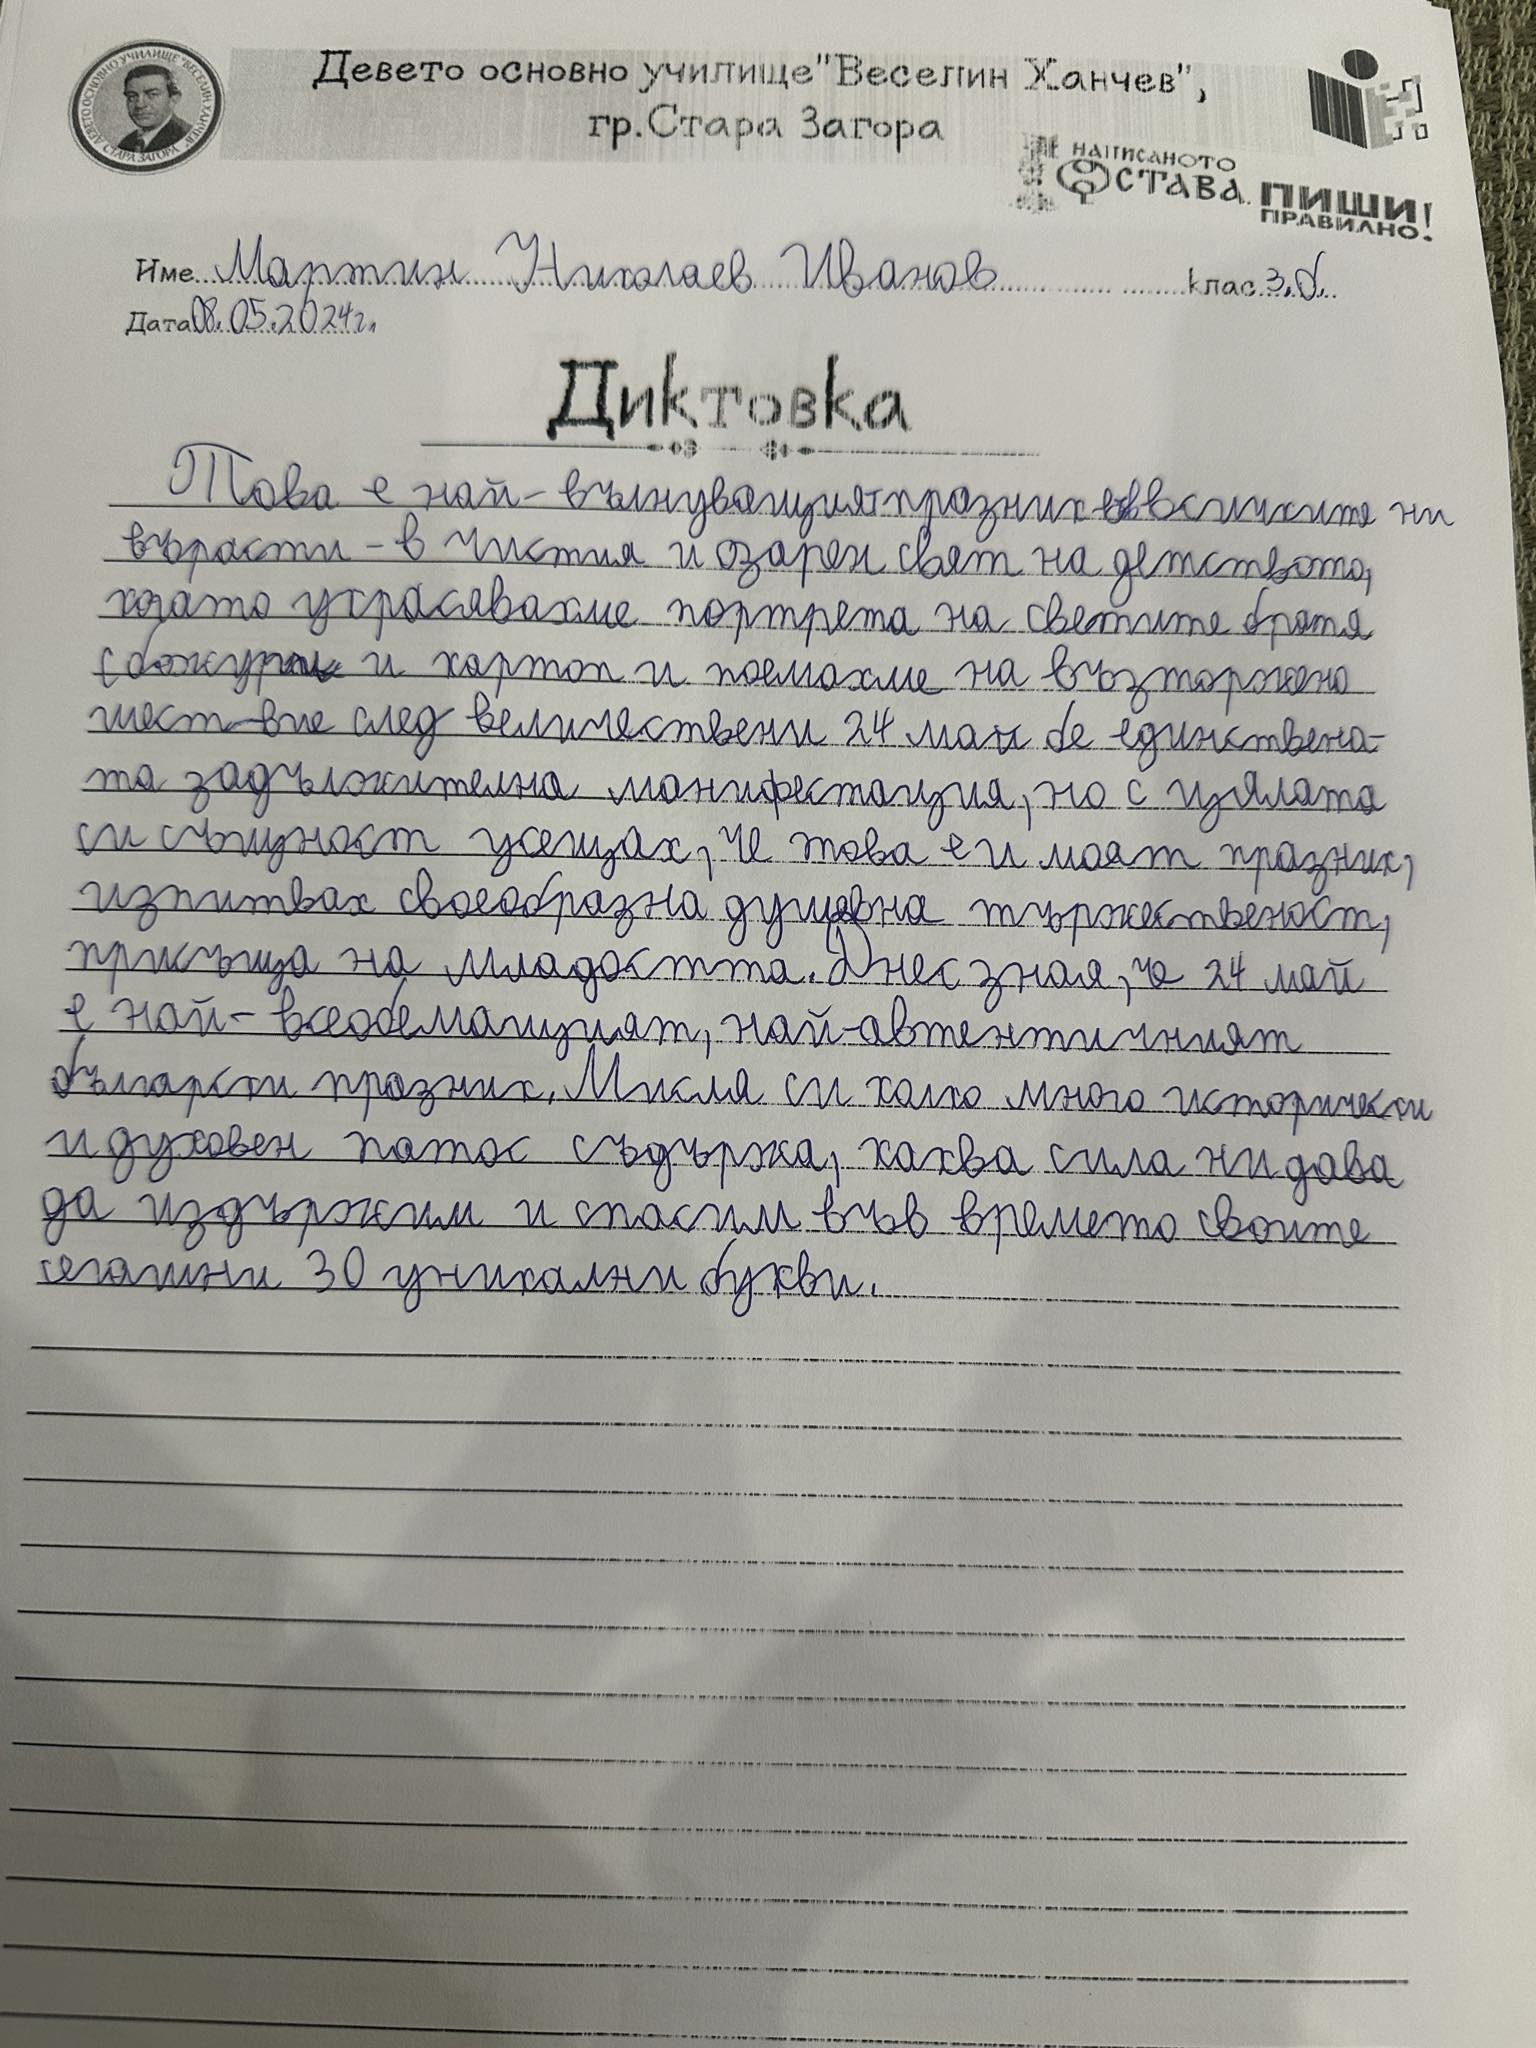 ДЕВЕТО ОСНОВНО УЧИЛИЩЕ "ВЕСЕЛИН ХАНЧЕВ" СТАРА ЗАГОРА
Девето основно училище"Веселин Ханчев",
гр.Стара Загора
НАПИСАНОТО
ОСТАВА. ПИШИ
ПРАВИЛНО!
Име Мартин Николаев Иванов клас 3.б.
Дата 08.05.2024г.
Диктовка
Това е най-вълнуващият празник във всичките ни
върасти - в чистия и озарен свят на детството,
когато украсявахме портрета на светите братя
с божури и картон и поемахме на възторжено
шест-вие след величествени 24 май бе единствена-
та задължителна манифестация, но с цялата
си същност усещах, че това е и моят празник,
изпитвах своеобразна душевна тържественост,
присъща на младостта. Днес зная, че 24 май
е най-всеобемащият, най-автентичният
български празник. Мисля си колко много исторически
и духовен патос съдържа, каква сила ни дава
да издържим и спасим във времето своите
сегашни 30 уникални букви.